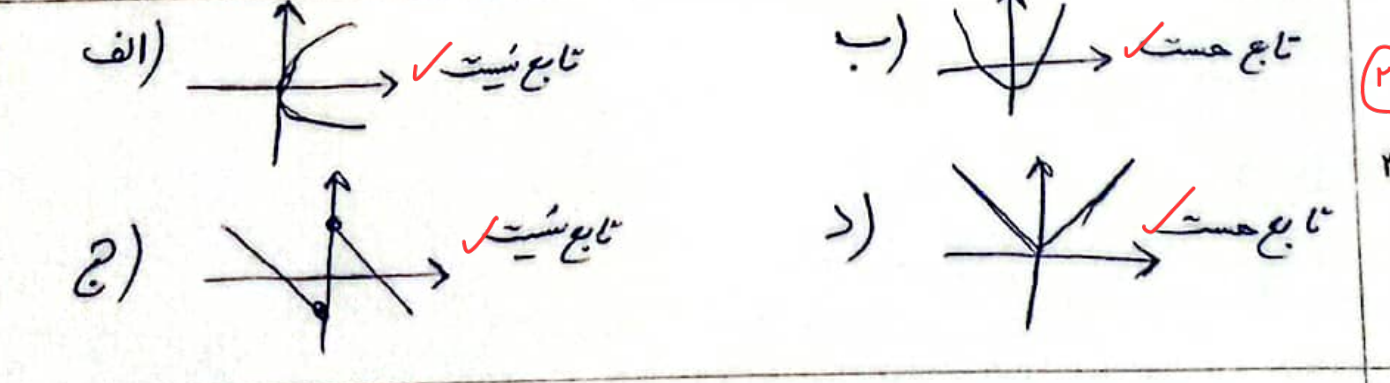 الف) تابع نیست
ب) تابع هست
ج) تابع نیست
د) تابع هست
۲